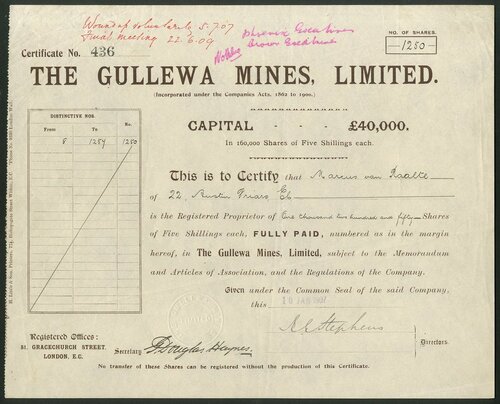 Wound up voluntarily 5.7.07
Final meeting 22.6.09
No. OF SHARES.
1250
Certificate No. 436
THE GULLEWA MINES, LIMITED.
(Incorporated under the Companies Acts, 1862 to 1900.)
DISTINCTIVE NOS.
From To No.
8 1257 1250
CAPITAL - - - £40,000.
In 160,000 Shares of Five Shillings each.
This is to Certify that Marcus van Raalte
of 22, Austin Friars, E.C.
is the Registered Proprietor of One thousand two hundred and fifty Shares
of Five Shillings each, FULLY PAID, numbered as in the margin
hereof, in The Gullewa Mines, Limited, subject to the Memorandum
and Articles of Association, and the Regulations of the Company.
Given under the Common Seal of the said Company,
this 10 JAN 1907
Registered Offices:
51, GRACECHURCH STREET,
LONDON, E.C.
Secretary
Directors.
No transfer of these Shares can be registered without the production of this Certificate.